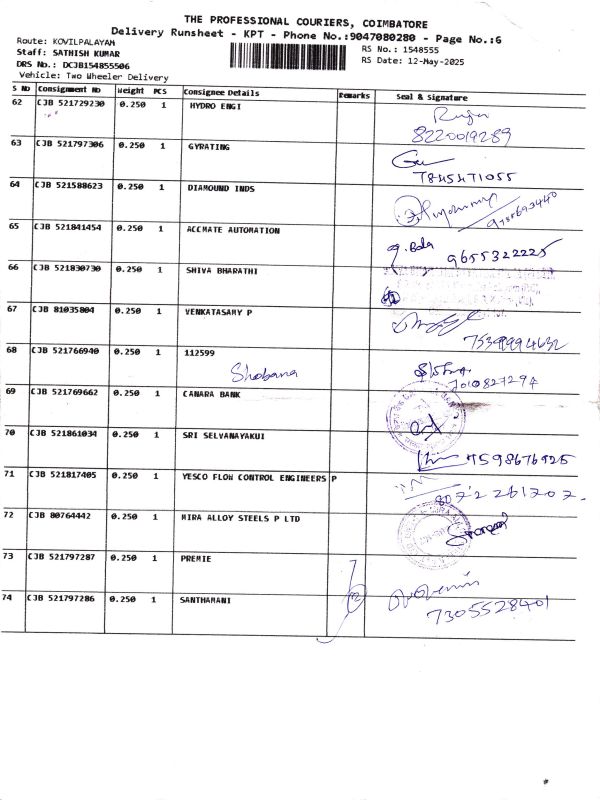 THE PROFESSIONAL COURIERS, COIMBATORE
Delivery Runsheet - KPT - Phone No.:9047080280 - Page No.:6
Route: KOVILPALAYAM
RS No.: 1548555
Staff: SATHISH KUMAR
RS Date: 12-May-2025
DRS No.: DCJB154855506
Vehicle: Two Wheeler Delivery
S No Consignment No Weight PCS Consignee Details Remarks Seal & Signature
62 CJB 521729230 0.250 1 HYDRO ENGI
8220019289
63 CJB 521797306 0.250 1 GYRATING
7845471055
64 CJB 521588623 0.250 1 DIAMOUND INDS
65 CJB 521841454 0.250 1 ACCMATE AUTOMATION
g. Bala 9655322225
66 CJB 521830730 0.250 1 SHIVA BHARATHI
67 CJB 81035804 0.250 1 VENKATASAMY P
68 CJB 521766940 0.250 1 112599
Shobana
7010827294
69 CJB 521769662 0.250 1 CANARA BANK
70 CJB 521861034 0.250 1 SRI SELVANAYAKUI
7598676925
71 CJB 521817405 0.250 1 YESCO FLOW CONTROL ENGINEERS P
8072 261702
72 CJB 80764442 0.250 1 MIRA ALLOY STEELS P LTD
73 CJB 521797287 0.250 1 PREMIE
74 CJB 521797286 0.250 1 SANTHAMANI
7305528401
#